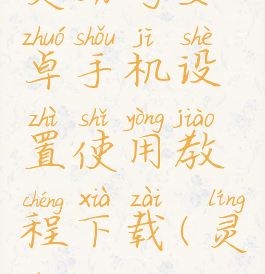 zhuó shǒu jī shè
卓手机设
zhì shǐ yòng jiào
置使用教
chéng xià zài líng
程下载(灵